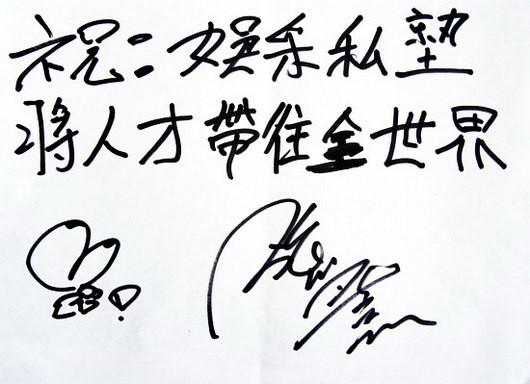 祝：娛乐私塾
將人才帶往全世界